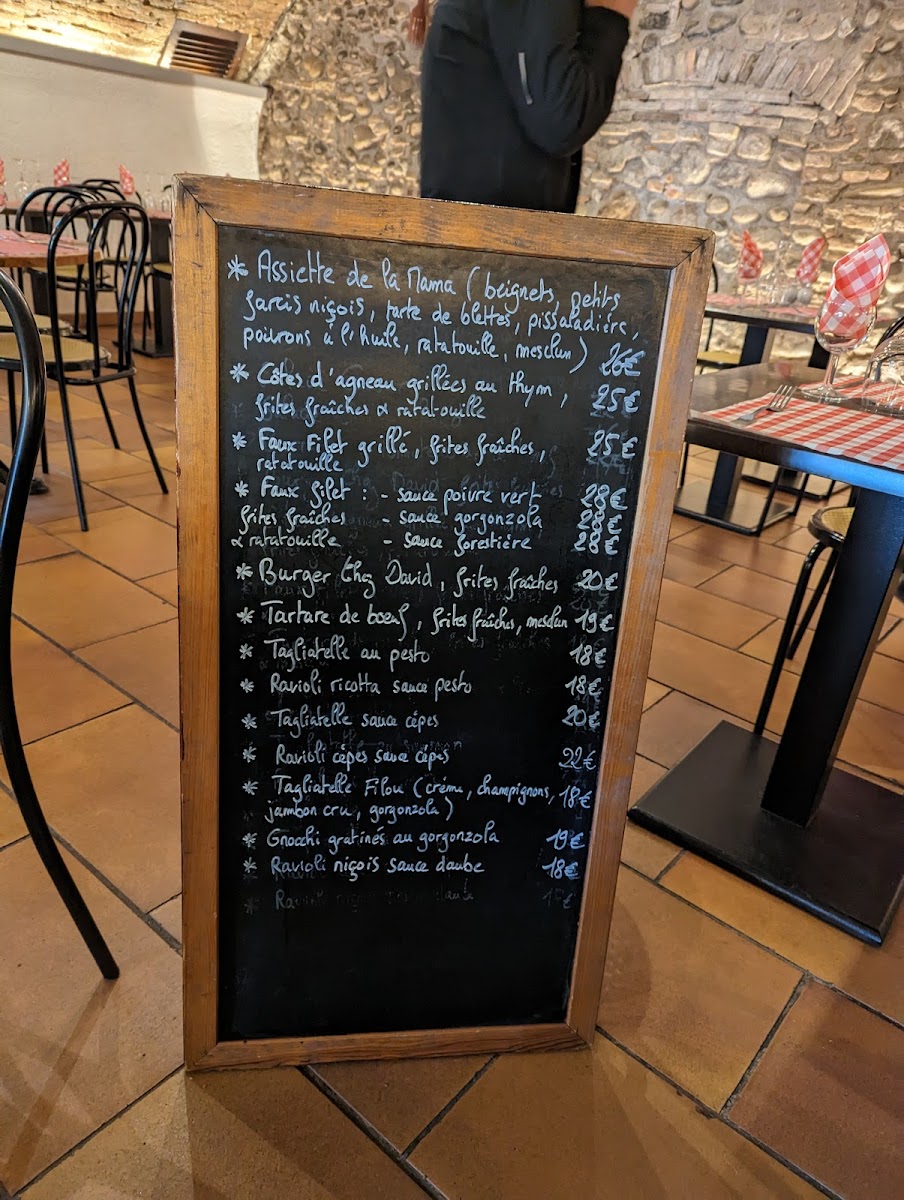 * Assiette de la Mama (beignets, petits
farcis niçois, tarte de blettes, pissaladière,
poivrons à l'huile, ratatouille, mesclun) 26€
* Côtes d'agneau grillées au thym,
frites fraîches & ratatouille 25€
* Faux Filet grillé, frites fraîches, 25€
ratatouille
* Faux filet : - sauce poivre vert 28€
frites fraîches - sauce gorgonzola 28€
& ratatouille - sauce forestière 28€
* Burger Chez David, frites fraîches 20€
* Tartare de bœuf, frites fraîches, mesclun 19€
* Tagliatelle au pesto 18€
* Ravioli ricotta sauce pesto 18€
* Tagliatelle sauce cèpes 20€
* Ravioli cèpes sauce cèpes 22€
* Tagliatelle Filou (crème, champignons, 18€
jambon cru, gorgonzola)
* Gnocchi gratinés au gorgonzola 19€
* Ravioli niçois sauce daube 18€